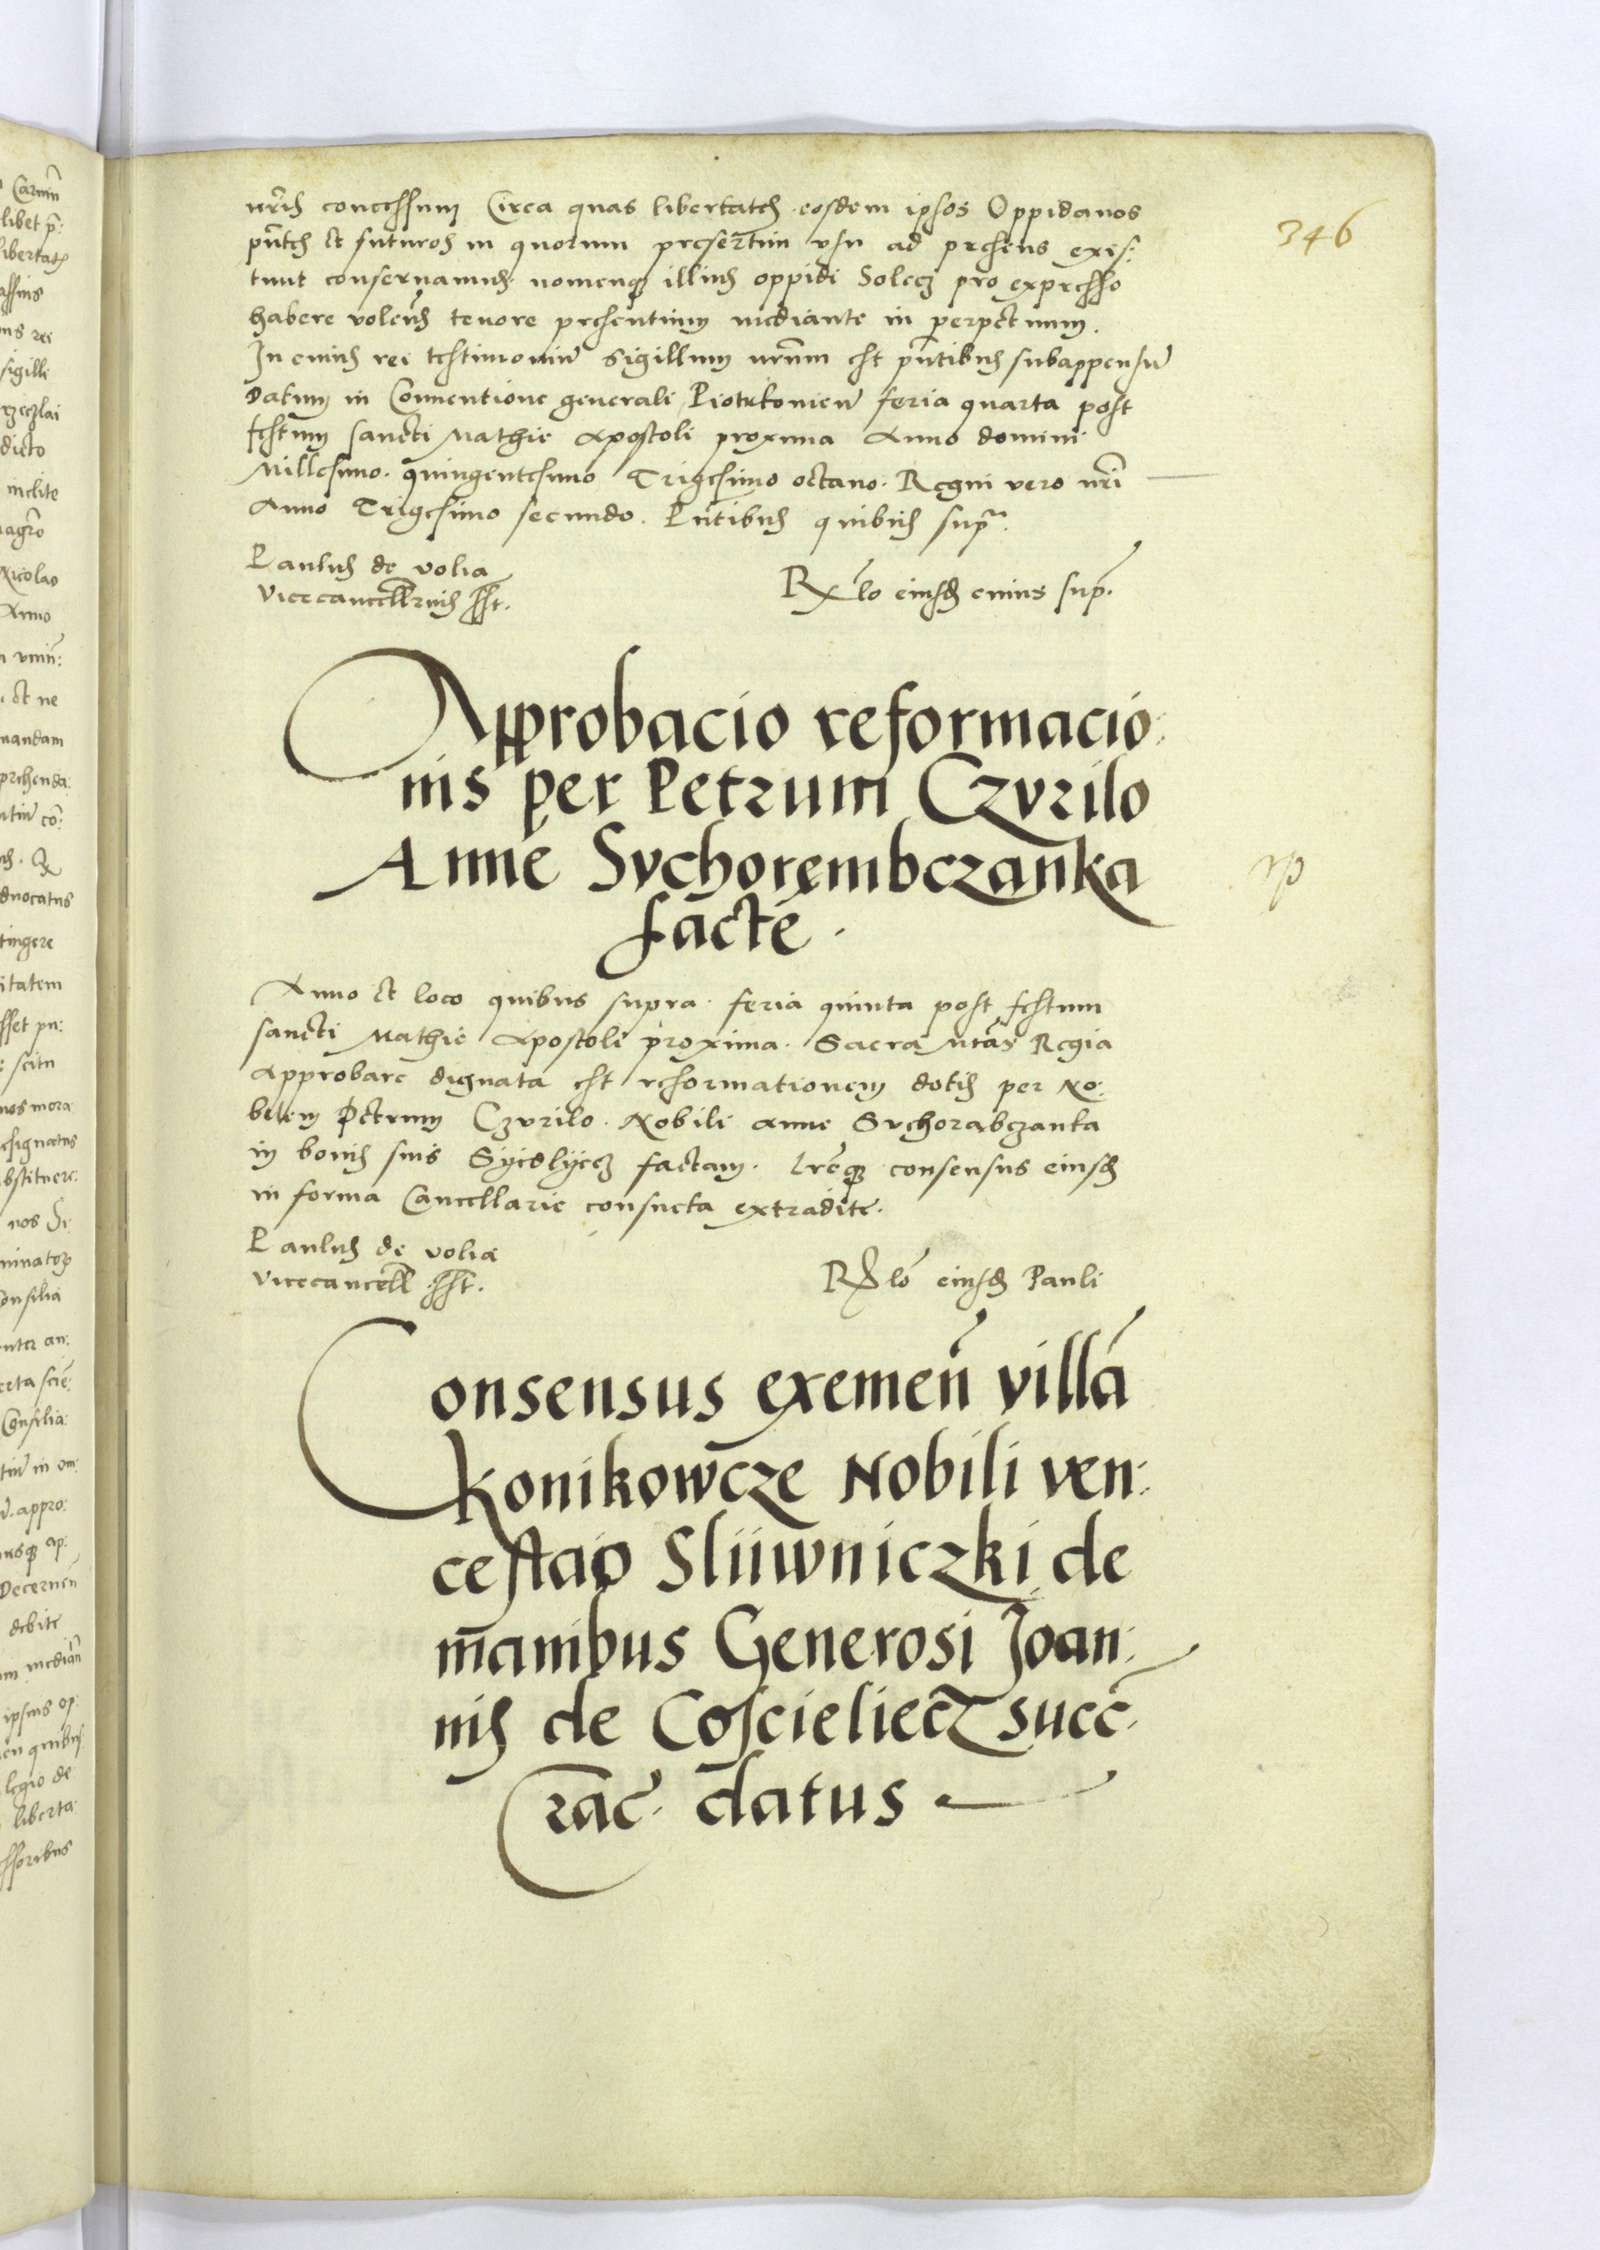 346
nr̃is concessum Circa quas libertates eosdem ipsos Oppidanos
pñtes et futuros in quorum presertim vsu ad presens exis:
tunt conservamus. nomenq̃ illius oppidi Solecz pro expresso
habere volen̄s tenore presentium mediante in perpetuum.
In cuius rei testimoniũ sigillum nr̃um est pñtibus subappensũ
Datum in Conventione generali Piotrkovieñ feria quarta post
festum sancti Mathie Apostoli proxima Anno domini
Millesimo. quingentesimo Trigesimo octavo. Regni vero nr̃i
Anno Trigesimo secundo. Pñtibus quibus supra.
Paulus de volia
vicecancellrius sst.
Rlõ eiusd cuius sup.
Approbacio reformacio:
nis per Petrum Czvrilo
Anne Svchorembczanka
facte.
rp
Anno et loco quibus supra. feria quinta post festum
sancti Mathie Apostoli proxima. Sacra Mtas Regia
approbare dignata est reformationem dotis per No:
bilem Petrum Czvrilo. Nobili anne Svchorabczanka
in bonis suis Syedlyecz factam. Lr̃eq̃ consensus eiusd
in forma Cancellarie consueta extradite.
Paulus de volia
vicecancell sst.
Rlõ eiusd Pauli
Consensus exemeñ villã
Konikowcze Nobili ven:
ceslao Sliiwniczki de
manibus Generosi Joan:
nis de Coscieliecz succ̃.
rac̃. datus